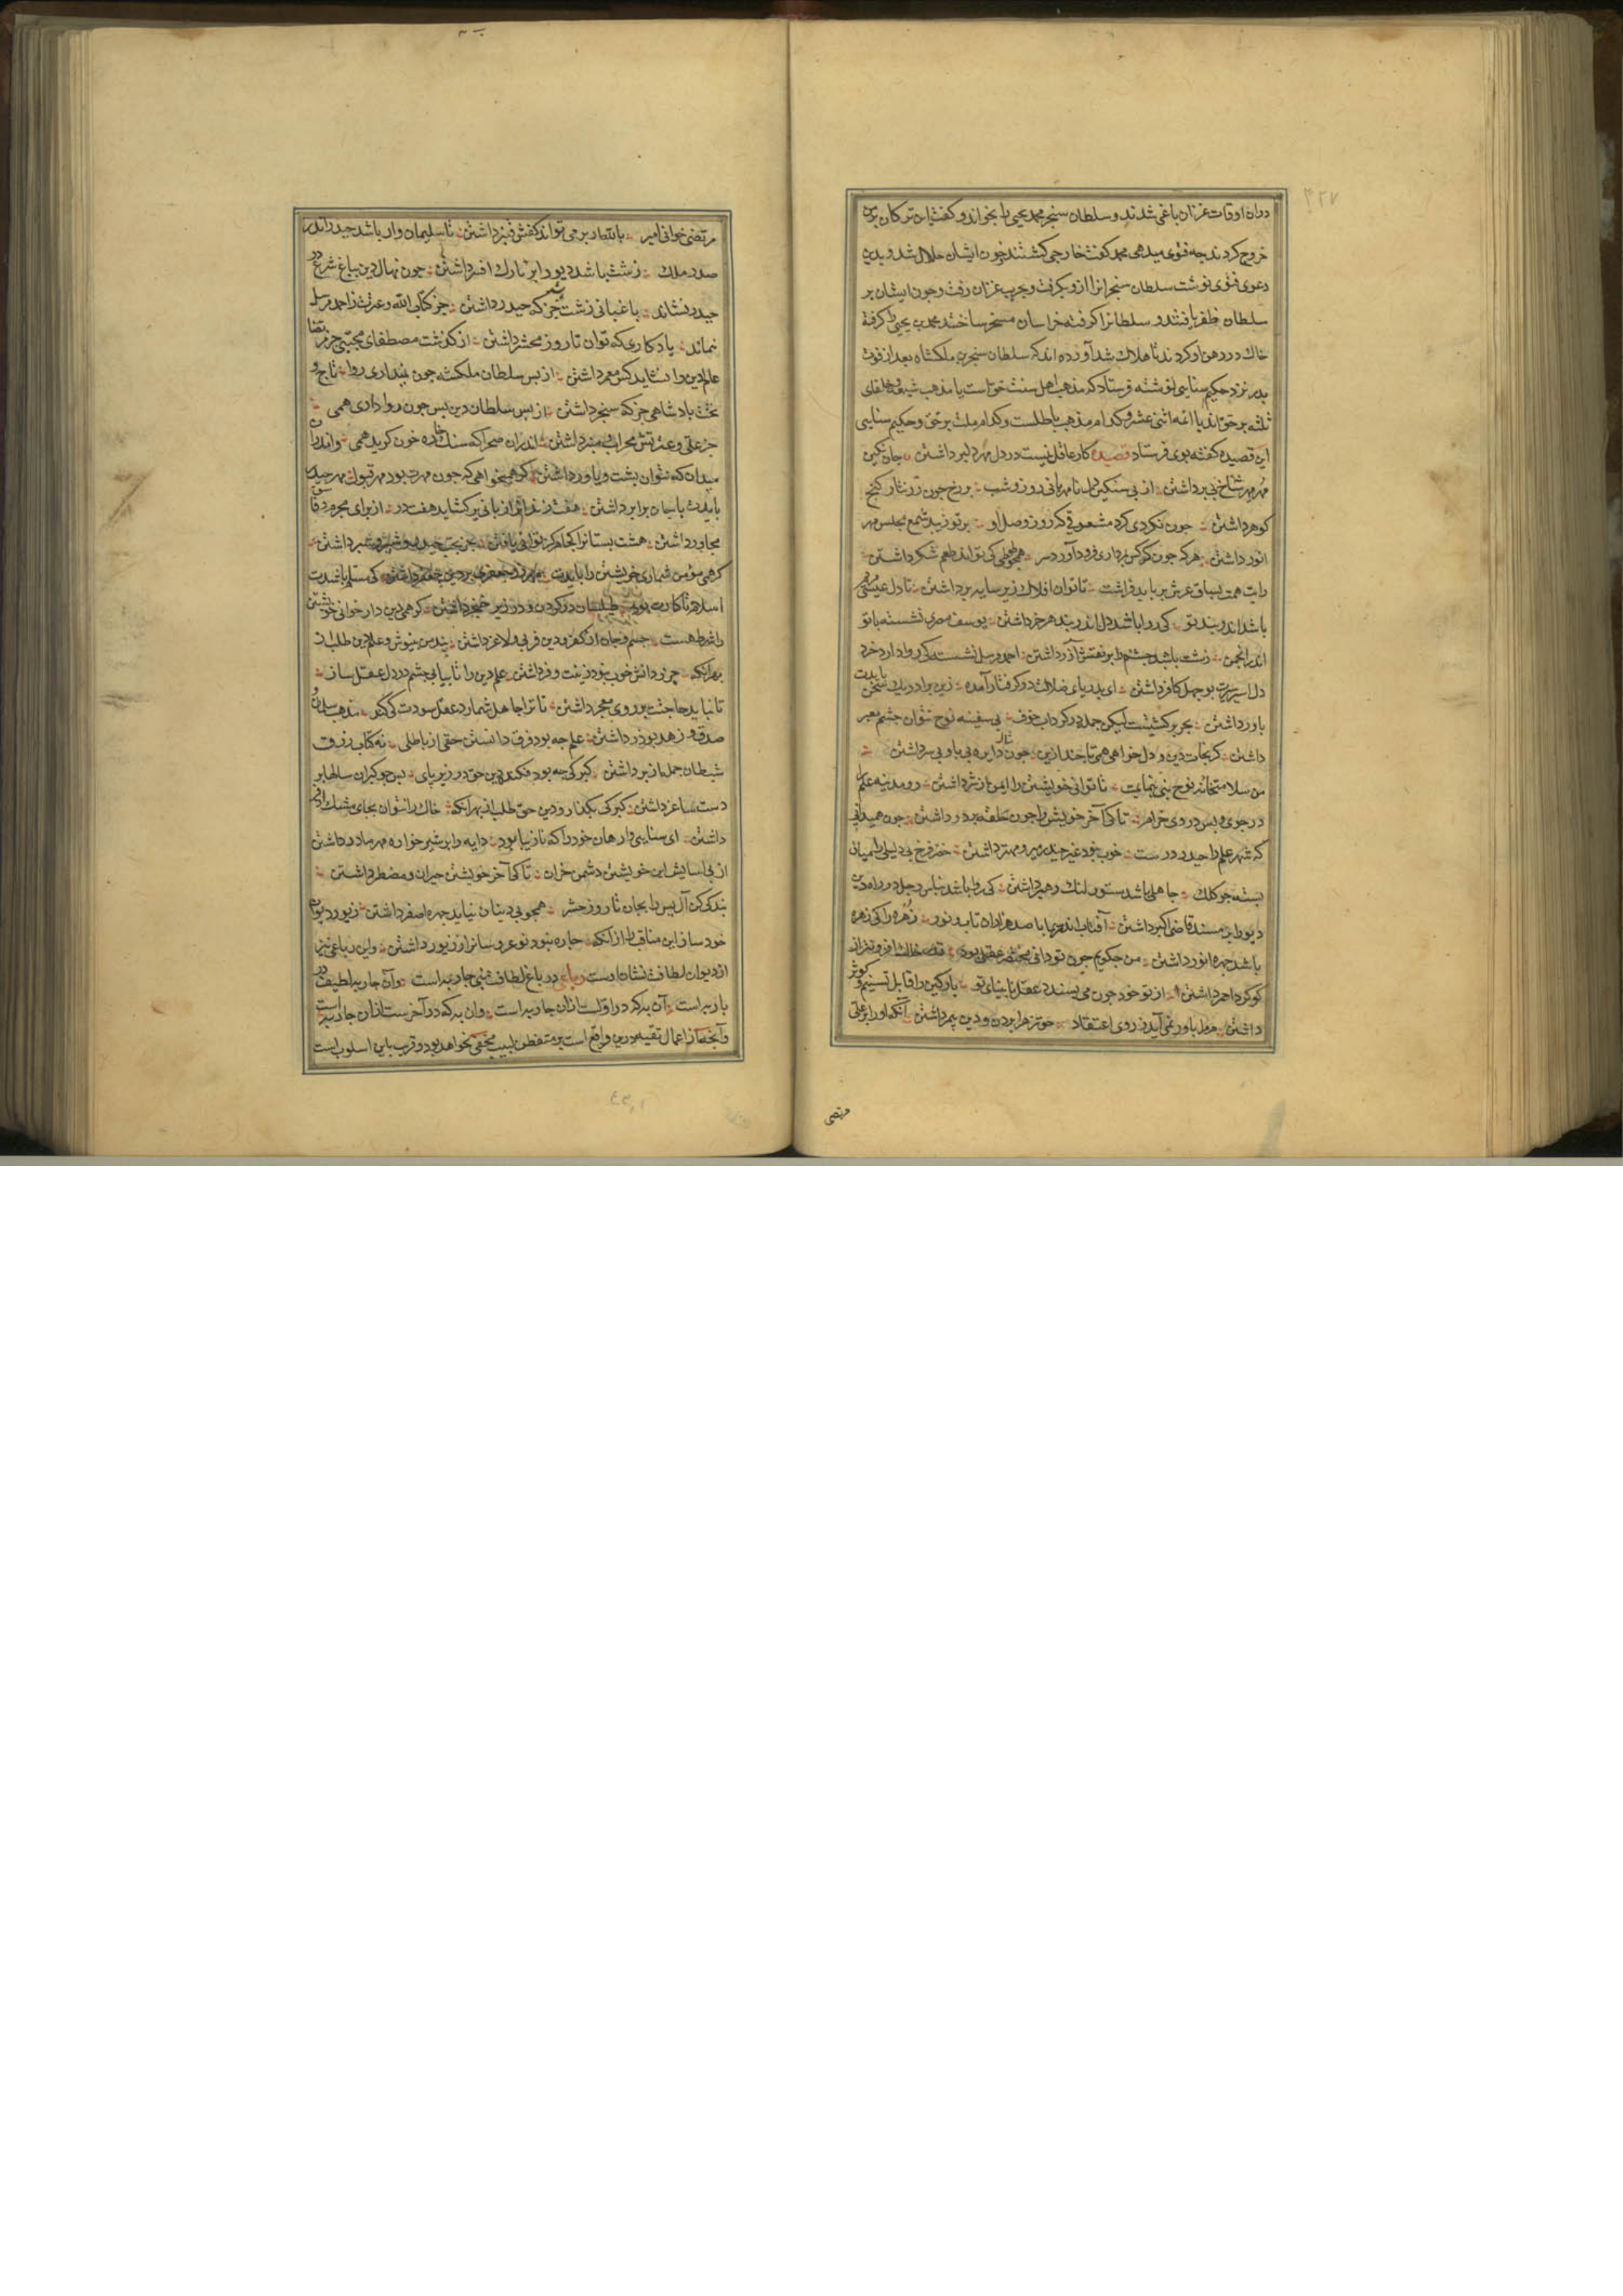 دران اوقات غزان باغی شدند و سلطان سنجر محمد یحیی را بخواند و گفت این ترکان بر من
خروج کردند چه فتوی میدهی محمد گفت خارجی کشتند خون ایشان حلال شد و بدین
دعوی فتوی نوشت سلطان سنجر انرا ازو بگرفت و بحرب غزان رفت و چون ایشان بر
سلطان ظفر یافتند و سلطانرا گرفته خراسان مسخر ساختند محمد بن یحیی را گرفته
خاک در دهن او کردند تا هلاک شد آورده اند که سلطان سنجر بن ملکشاه بعد از فوت
پدر نزد حکیم سنایی نوشته فرستاد که مذهب اهل سنت حق است یا مذهب شیعه و خلفای
ثلثه بر حق اند یا ائمه اثنی عشر و کدام مذهب باطلست و کدام ملت بر حق و حکیم سنایی
این قصیده گفته بوی فرستاد قصیده کار عاقل نیست در دل مهر دلبر داشتن جان نگین
مهر مهر شاخ بی بر داشتن از پی سنگین دل نامهربانی روز و شب بر رخ چون زر نثار گنج
گوهر داشتن چون نکردی گرد معشوقی که روز وصل او بر تو زیبد شمع مجلس مهر
انور داشتن هرکه چون کرکس بمرداری فرود آورد سر همچو طوطی کی تواند طعم شکر داشتن
رایت همت بساق عرش بر باید فراشت تا توان افلاک زیر سایه پر داشتن تا دل عیسی مریم
باشد اندر بند تو کی روا باشد دل اندر بند هر خر داشتن یوسف مصری نشسته با تو
اندر انجمن زشت باشد چشم را بر نقش آزر داشتن احمد مرسل نشسته کی روا دارد خرد
دل اسیر سیرت بوجهل کافر داشتن ای بدریای ضلالت در گرفتار آمده زین برادر یک سخن بایدت
باور داشتن بحر پر کشتیست لیکن جمله در گرداب خوف بی سفینه نوح نتوان چشم معبر
داشتن گر نجات دین و دل خواهی همی تا چند ازین چون دایره بی پا و بی سر داشتن
من سلامت خانه نوح نبی بنمایمت تا توانی خویشتن را ایمن از شر داشتن رو مدینه علم را
در جوی و پس در وی خرام تا کی آخر خویشتن را چون حلقه بر در داشتن چون همیدانی
که شهر علم را حیدر درست خوب نبود غیر حیدر میر و مهتر داشتن خضر فرخ پی دلیلی را میان
بسته چو کلک جاهلی باشد ستور لنگ رهبر داشتن کی روا باشد بناموس و حیل در راه دین
دیو را بر مسند قاضی اکبر داشتن آفتاب اندر سما با صد هزاران تاب و نور زهره را کی زهره
باشد چهره انور داشتن من چگویم چون تو دانی مختصر عقلی بود قدر خاک افزونتر از
گوگرد احمر داشتن از تو خود چون می پسندد عقل نابینای تو پارگین را قابل تسنیم و کوثر
داشتن مر مرا باور نمی آید ز روی اعتقاد حق زهرا بردن و دین پیمبر داشتن آنکه او را بر علی
مرتضی
مرتضی خوانی امیر بالله ار بر می تواند کفش قنبر داشتن تا سلیمان وار باشد حیدر اندر
صدر ملک زشت باشد دیو را بر تارک افسر داشتن چون نهال دین بباغ شرع در
حیدر نشاند باغبانی زشت باشد جز که حیدر داشتن جز کتاب الله و عترت ز احمد مرسل
نماند یادگاری که توان تا روز محشر داشتن از گذشت مصطفای مجتبی جز مرتضا
عالم دین را نشاید کس معمر داشتن از پس سلطان ملکشه چون نمیداری روا تاج و
تخت پادشاهی جز که سنجر داشتن از پس سلطان دین پس چون روا داری همی
جز علی و عترتش محراب و منبر داشتن اندران صحرا که سنگ خاره خون گرید همی واندران
میدان که نتوان پشت و یاور داشتن گر همیخواهی که چون مهرت بود مهر قبول مهر حیدر
بایدت با جان برابر داشتن هفت دوزخ را زبانی برگشاید هفت در از برای مجرم و فاسق
مجاور داشتن هشت بستانرا کجا هرگز توانی یافتن جز بحب حیدر و شبیر و شبر داشتن
گر همی مؤمن شماری خویشتن را بایدت مهر زر جعفری بر دین جعفر داشتن کی مسلم باشدت
اسلام تا کارت بود طیلسان در گردن و در زیر خنجر داشتن گر همی دین دار خوانی خویشتن
را شرط هست جسم و جان از کفر و دین فربی و لاغر داشتن پند من بنیوش و علم دین طلب از
بهر آنکه جز بدانش خوب نبود زینت و فر داشتن علم دین را تا بیابی چشم در دل عقل ساز
تا نباید حاجتت بر روی معجر داشتن تا ترا جاهل شمارد عقل سودت کی کند مذهب سلمان و
صدق و زهد بوذر داشتن علم چه بود فرق دانستن حقی از باطلی نه کتاب زرق
شیطان جمله از بر داشتن گبرکی چه بود فکندن دین حق در زیر پای پس چو گبران سالها بر
دست ساغر داشتن گبرکی بگذار و دین حق طلب از بهر آنکه خاک را نتوان بجای مشک اذفر
داشتن ای سنایی وارهان خود را که نازیبا بود دایه را بر شیر خواره مهر مادر داشتن
از پی آسایش این خویشتن دشمن خران تا کی آخر خویشتن حیران و مضطر داشتن
بندگی کن آل یس را بجان تا روز حشر همچو بی دینان نباید چهره اصفر داشتن زیور دیوان
خود ساز این مناقب را از آنکه چاره نبود نوعروسانرا ز زیور داشتن و این رباعی نیز
از دیوان لطافت نشان اوست رباعی در باغ لطافت بتنی جاریه است وان جاریه لطیف در
باریه است آن به که در اولست ازان جاریه است وان به که در آخرست ازان جاریه است
و آنچه از اعمال تقیه درین واقع است بر متفطن لبیب مخفی نخواهد بود و قریب باین اسلوب است